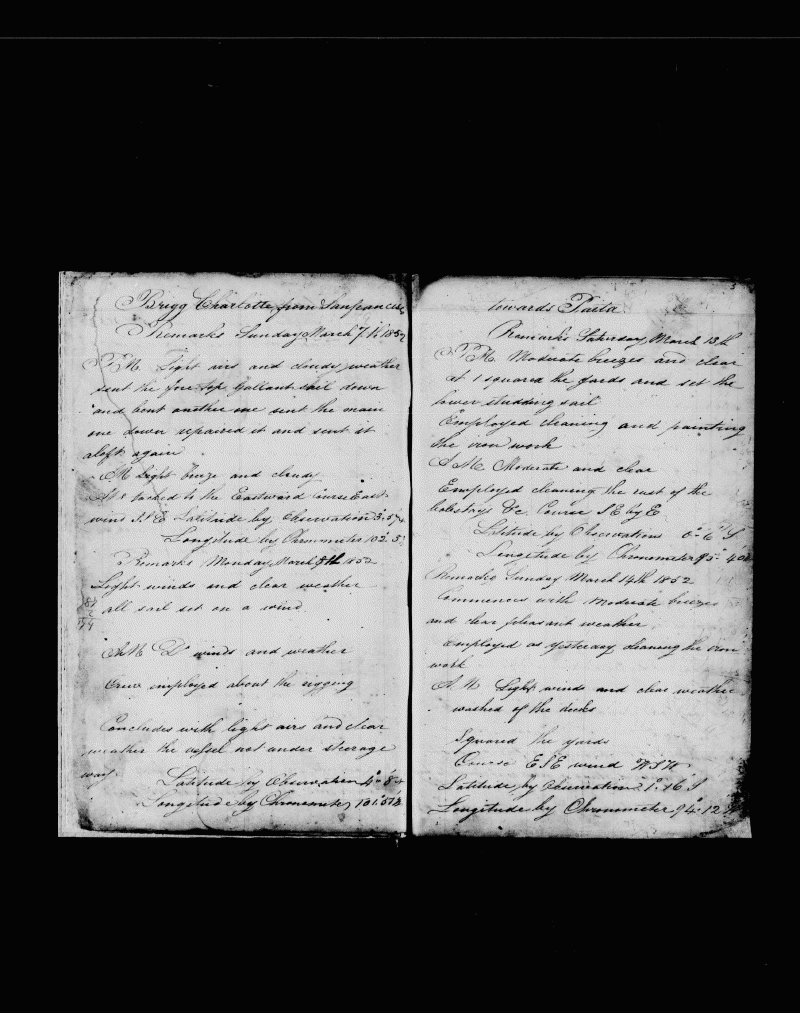 Brigg Charlotte from Sanfrancisco
Remarks Sunday March 7th 1852
P.M. Light airs and cloudy weather
sent the fore top Gallant sail down
and bent another one sent the main
one down repaired it and sent it
aloft again
AM Light breze and cloudy
At tacked to the Eastward Course East
wind S.S.E Latitude by Observation 3.57
Longitude by Chronometer 102.5
Remarks Monday March 8th 1852
Light winds and clear weather
all sail set on a wind
AM Do winds and weather
Crew employed about the rigging
Concludes with light airs and clear
weather the vessel not under steerage
way
Latitude by Observation 4° 8
Longitude by Chronometer 101.51
towards Paita
3
Remarks Saturday March 13th
P.M. Moderate breezes and clear
at 1 squared the yards and set the
lower studding sail
Employed cleaning and painting
the iron work
A M. Moderate and clear
Employed cleaning the rust of the
bolestrys &c Course S E by E
Latitude by Observation 0° 6 S
Longitude by Chronometer 95° 40
Remarks Sunday March 14th 1852
Commences with Moderate breezes
and clear pleasant weather
employed as yesterday cleaning the iron
work
A. M. Light winds and clear weather
washed of the decks
Squared the yards
Course E S E wind W S W
Latitude by Observation 1° 16 S
Longitude by Chronometer 94° 12